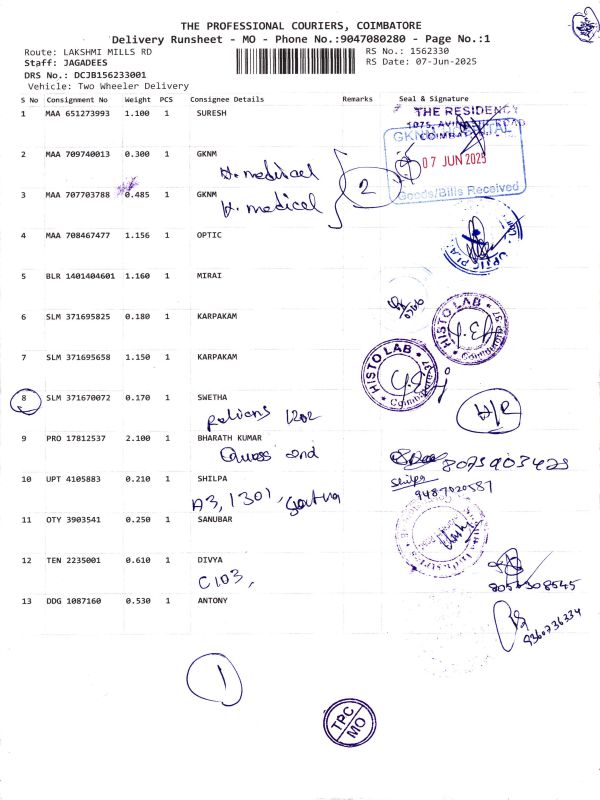 THE PROFESSIONAL COURIERS, COIMBATORE
Delivery Runsheet - MO - Phone No.:9047080280 - Page No.:1
Route: LAKSHMI MILLS RD
RS No.: 1562330
Staff: JAGADEES
RS Date: 07-Jun-2025
DRS No.: DCJB156233001
Vehicle: Two Wheeler Delivery
S No Consignment No Weight PCS Consignee Details Remarks Seal & Signature
1 MAA 651273993 1.100 1 SURESH
THE RESIDENCY
1075, AVINASHI ROAD
COIMBATORE
2 MAA 709740013 0.300 1 GKNM
GKNM HOSPITAL
07 JUN 2025
Goods/Bills Received
2
3 MAA 707703788 0.485 1 GKNM
H. medical
4 MAA 708467477 1.156 1 OPTIC
5 BLR 1401404601 1.160 1 MIRAI
6 SLM 371695825 0.180 1 KARPAKAM
HISTO LAB
7 SLM 371695658 1.150 1 KARPAKAM
HISTO LAB
8 SLM 371670072 0.170 1 SWETHA
1202
9 PRO 17812537 2.100 1 BHARATH KUMAR
10 UPT 4105883 0.210 1 SHILPA
Shilpa
9487020587
A3, 1301,
11 OTY 3903541 0.250 1 SANUBAR
12 TEN 2235001 0.610 1 DIVYA
C103,
13 DDG 1087160 0.530 1 ANTONY
9360736334
1
TPC
MO